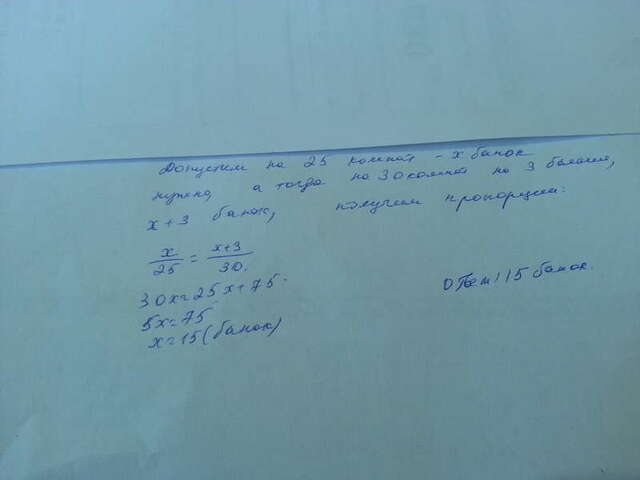 Допустим на 25 комнат - x банок
нужно, а тогда на 30 комнат на 3 больше,
x+3 банок, получим пропорцию:
x/25 = x+3/30.
30x=25x+75.
5x=75
x=15 (банок)
Ответ: 15 банок.